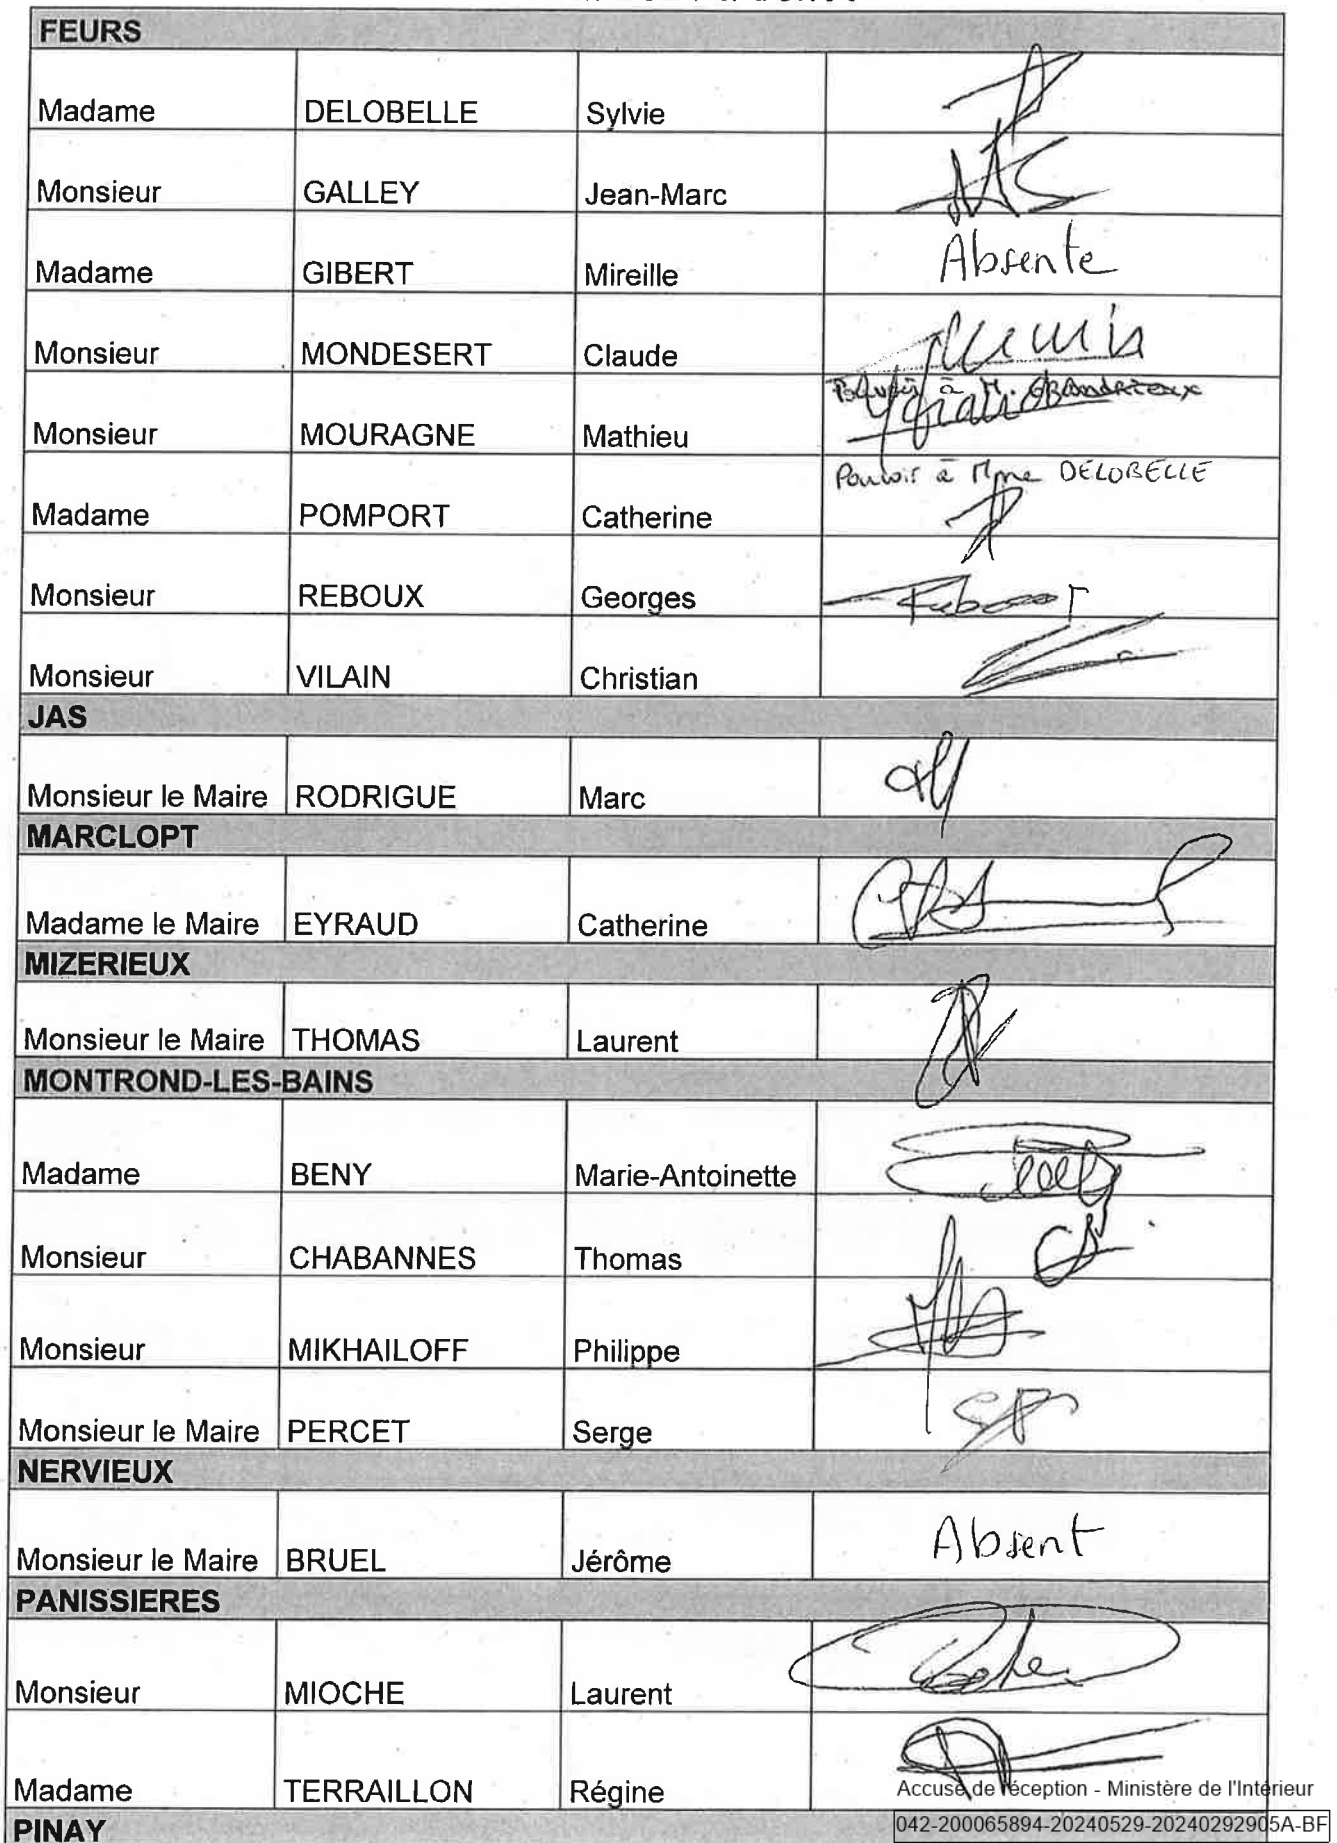 FEURS
Madame DELOBELLE Sylvie
Monsieur GALLEY Jean-Marc
Madame GIBERT Mireille Absente
Monsieur MONDESERT Claude
Pouvoir à M. GRANDRIEUX
Monsieur MOURAGNE Mathieu
Pouvoir à Mme DELOBELLE
Madame POMPORT Catherine
Monsieur REBOUX Georges
Monsieur VILAIN Christian
JAS
Monsieur le Maire RODRIGUE Marc
MARCLOPT
Madame le Maire EYRAUD Catherine
MIZERIEUX
Monsieur le Maire THOMAS Laurent
MONTROND-LES-BAINS
Madame BENY Marie-Antoinette
Monsieur CHABANNES Thomas
Monsieur MIKHAILOFF Philippe
Monsieur le Maire PERCET Serge
NERVIEUX
Monsieur le Maire BRUEL Jérôme Absent
PANISSIERES
Monsieur MIOCHE Laurent
Madame TERRAILLON Régine
Accusé de réception - Ministère de l'Intérieur
PINAY
042-200065894-20240529-20240292905A-BF